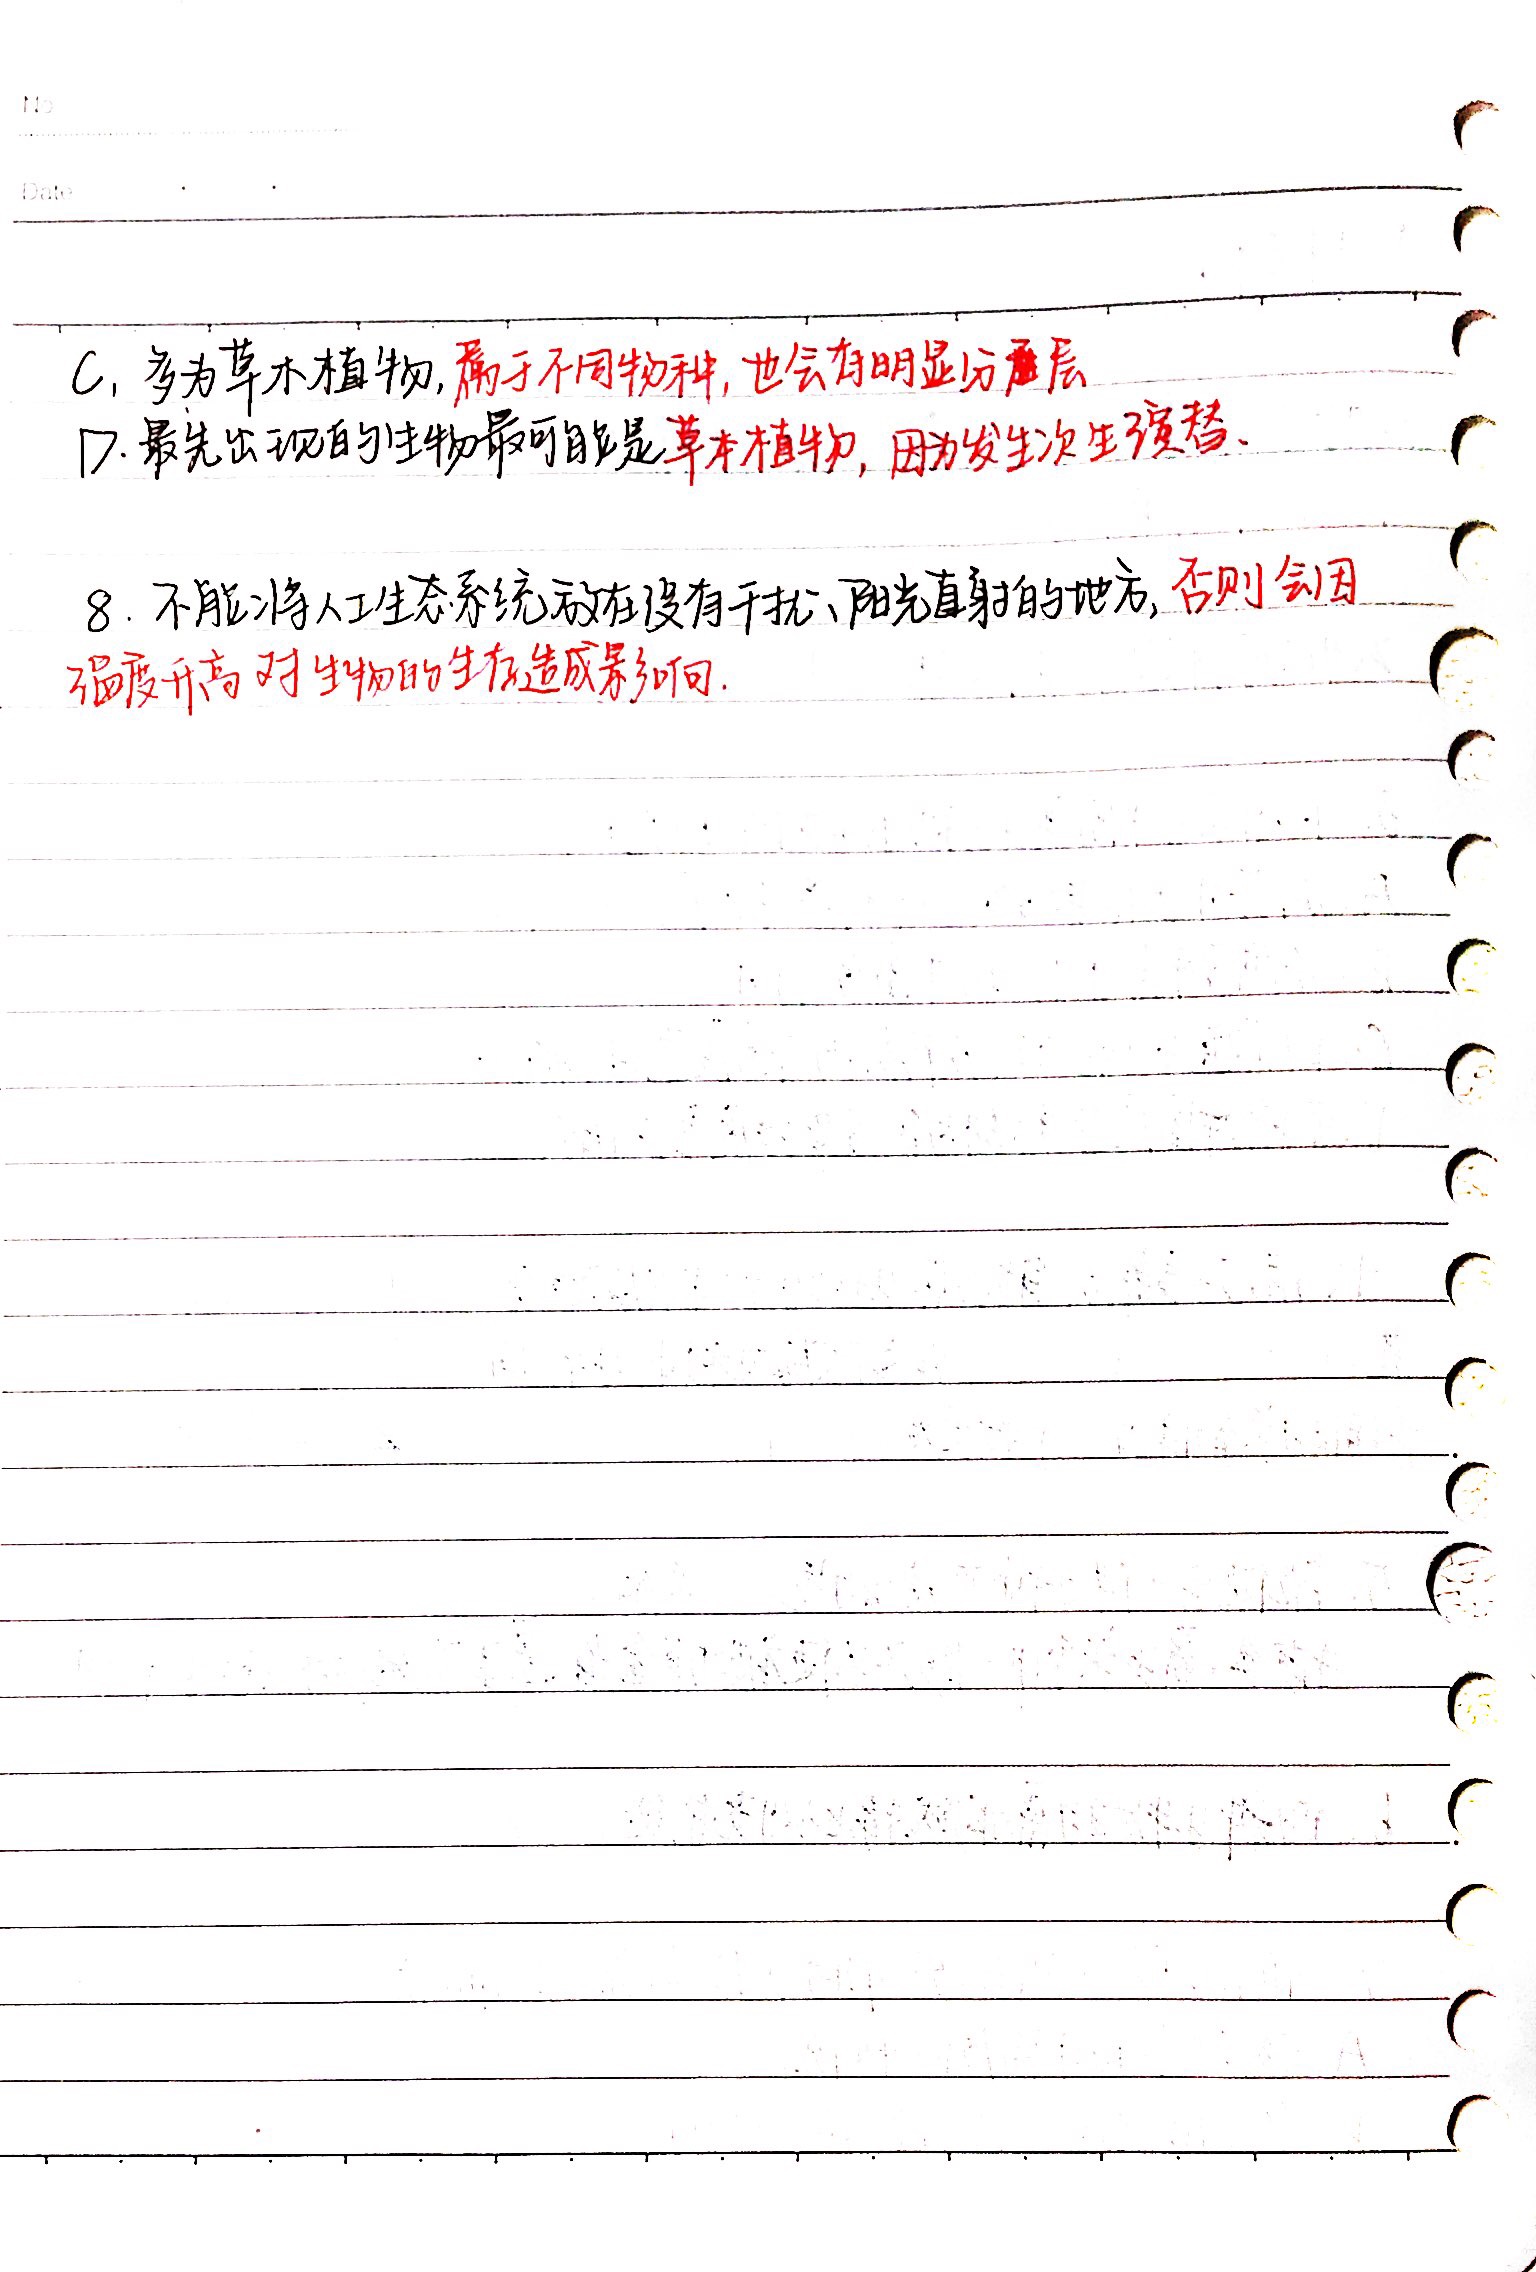 No
Date
C. 多为草本植物,属于不同物种,也会有明显分层
D.最先出现的生物最可能是草本植物,因为发生次生演替、
8.不能将人工生态系统放在没有干扰、阳光直射的地方,否则会因
温度升高对生物的生存造成影响.